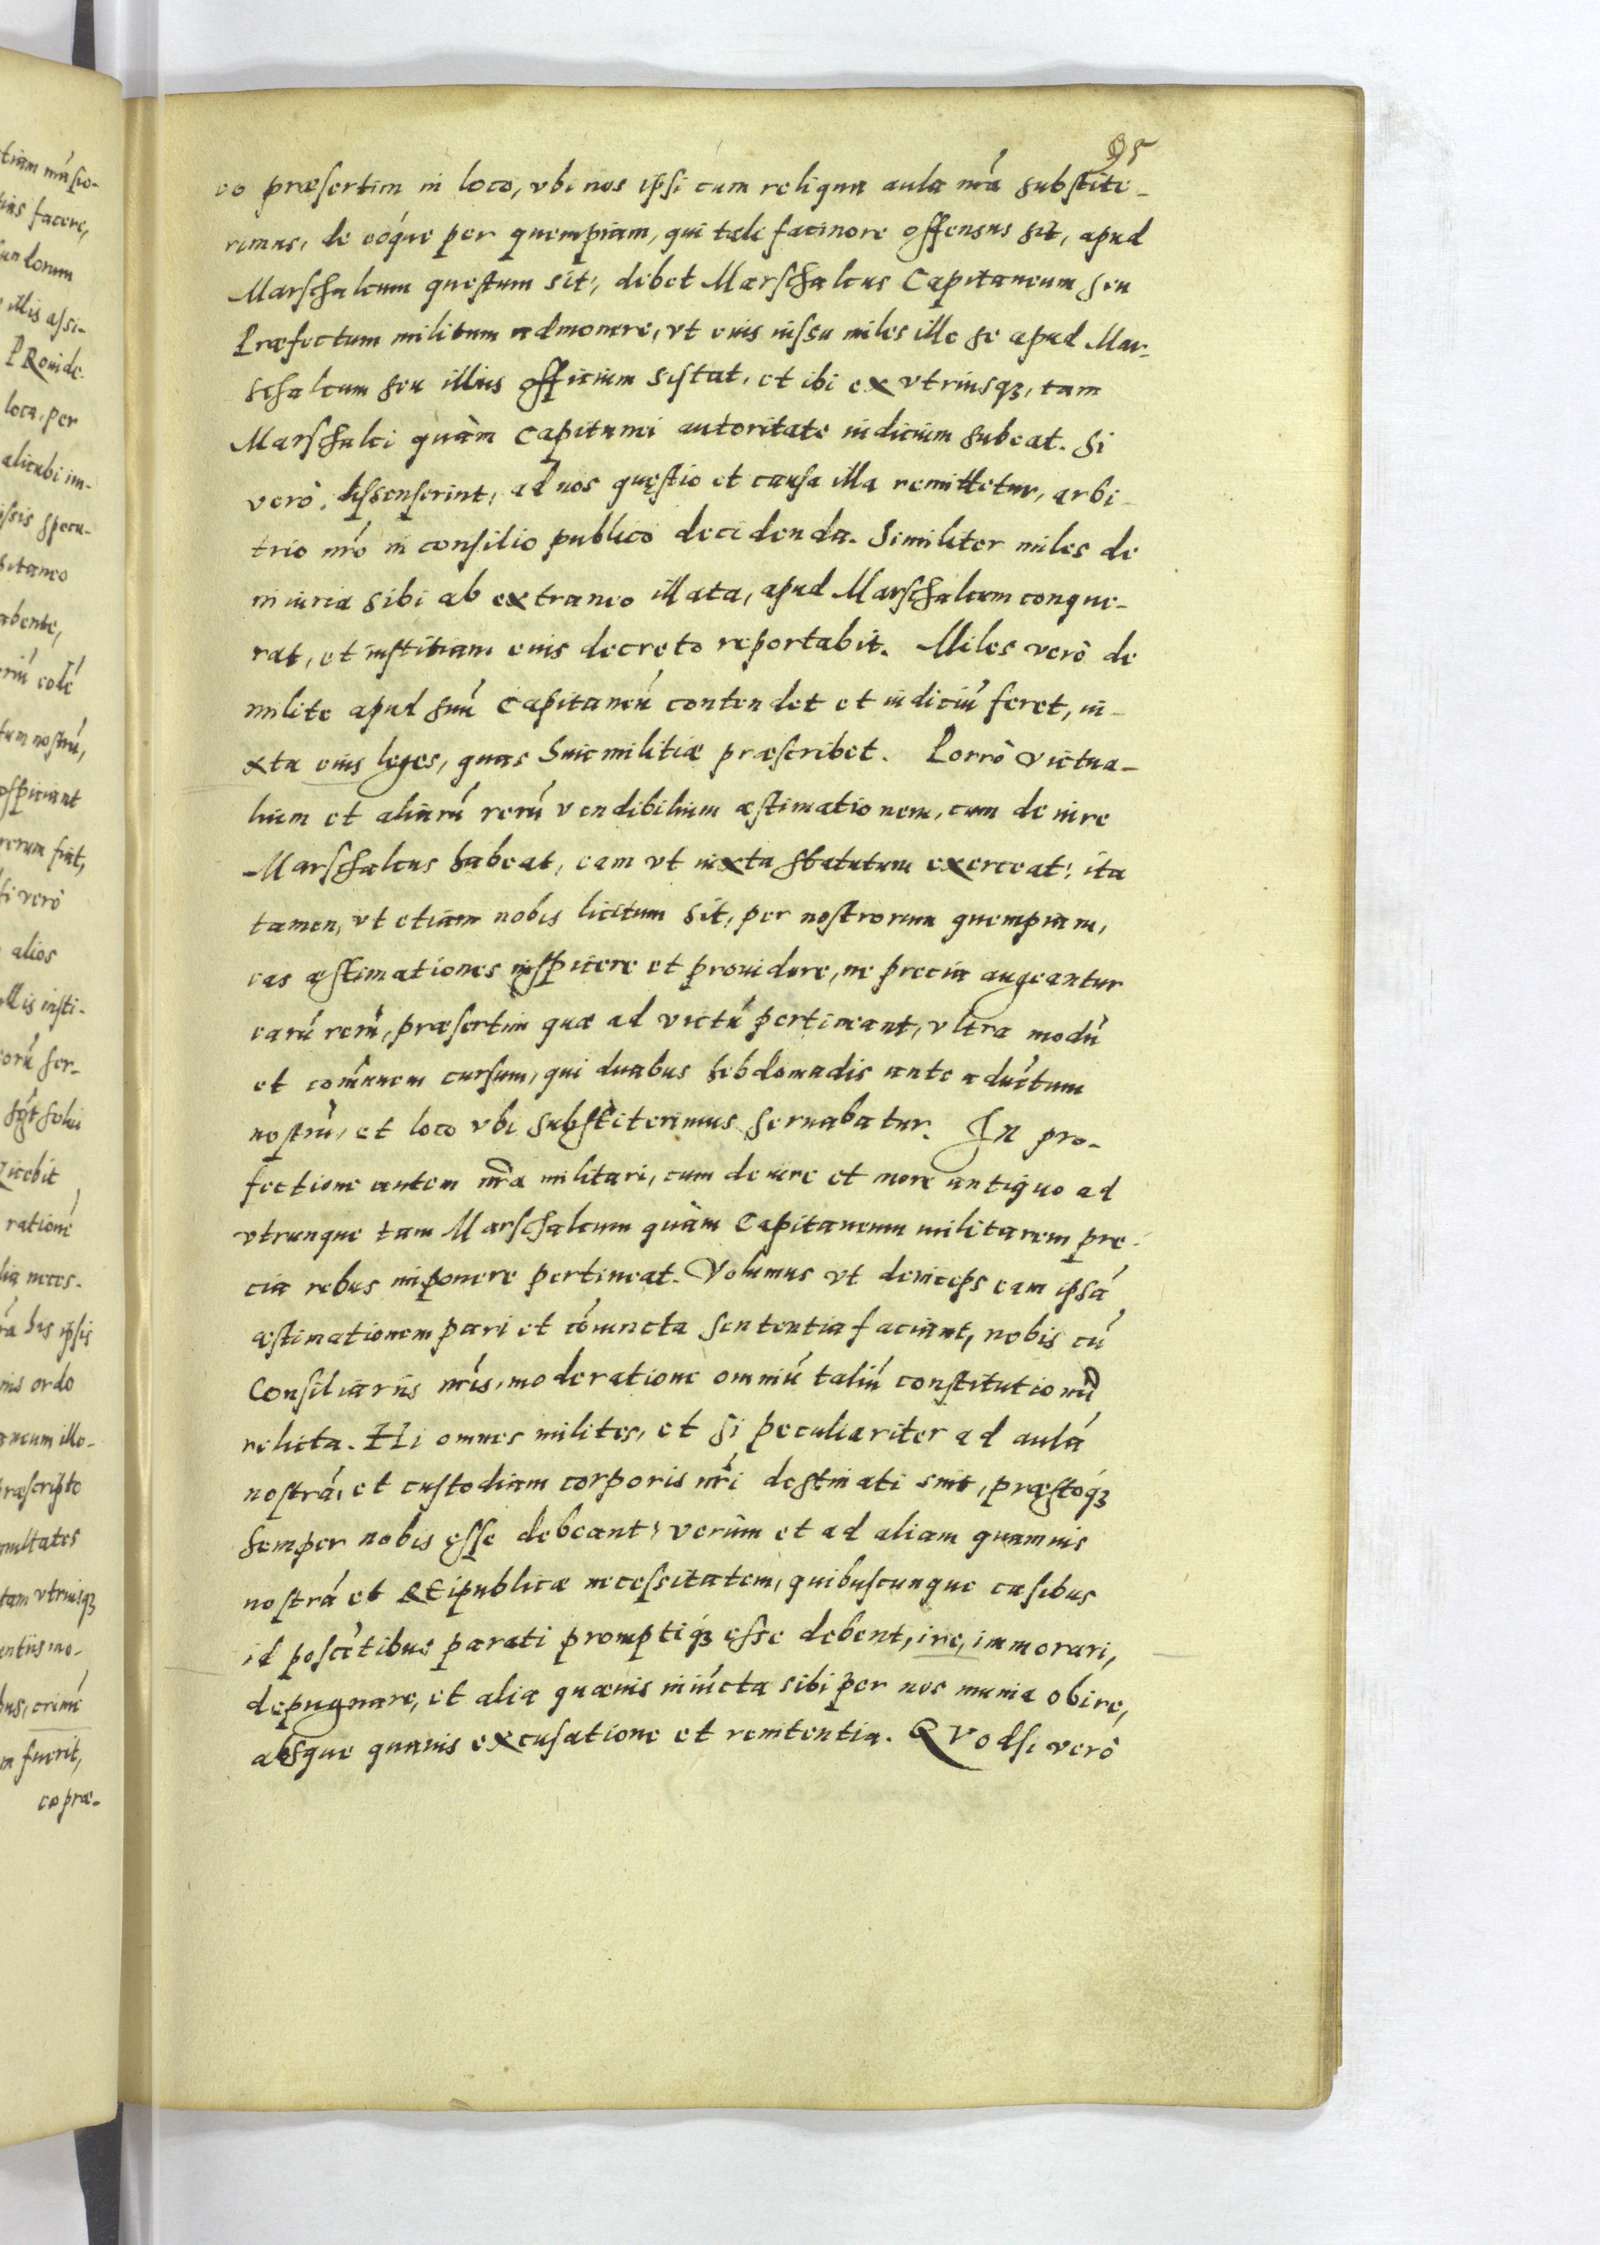 95
eo præsertim in loco, vbi nos ipsi cum reliqua aula nrã substite-
rimus, de eóque per quempiam, qui tali facinore offensus sit, apud
Marschalcum questum sit, debet Marschalcus Capitaneum seu
Præfectum militum admonere, vt eius iussu miles ille se apud Mar-
schalcum seu illius officium sistat, et ibi ex vtriusqꝫ, tam
Marschalci quàm Capitanei autoritate iudicium subeat. Si
verò dissenserint, ad nos quęstio et causa illa remittetur, arbi-
trio nrõ in consilio publico decidenda. Similiter miles de
iniuria sibi ab extraneo illata, apud Marschalcum conque-
rat, et iustitiam eius decreto reportabit. Miles verò de
milite apud suũ Capitaneũ contendet et iudiciũ feret, iu-
xta eius leges, quas suæ militiæ præscribet. Porrò victua-
lium et aliarũ rerũ vendibilium æstimationem, cum de iure
Marschalcus habeat, eam vt iuxta statutum exerceat: ita
tamen, vt etiam nobis licitum sit, per nostrorum quempiam,
eas æstimationes inspicere et prouidere, ne precia augeantur
earũ rerũ, præsertim quæ ad victũ pertineant, vltra modũ
et com̃unem cursum, qui duabus hebdomadis ante aduẽtum
nostrũ, et loco vbi substiterimus seruabatur. In pro-
fectione autem nrã militari, cum de iure et more antiquo ad
vtrunque tam Marschalcum quàm Capitaneum militarem pre-
cia rebus imponere pertineat. Volumus vt deinceps eam ipsã
æstimationem pari et cõiuncta sententia faciant, nobis cũ
Consiliariis nrĩs, moderatione omniũ taliũ constitutionũ
relicta. Hi omnes milites, et si peculiariter ad aulã
nostrã, et custodiam corporis nrĩ destinati sint, præstóqꝫ
semper nobis esse debeant, verùm et ad aliam quamuis
nostrã et REipublicæ necessitatem, quibuscunque casibus
id poscẽtibus parati promptiqꝫ esse debent, ire, immorari,
depugnare, et alia quæuis iniũcta sibi per nos munia obire,
absque quauis excusatione et renitentia. QVodsi verò